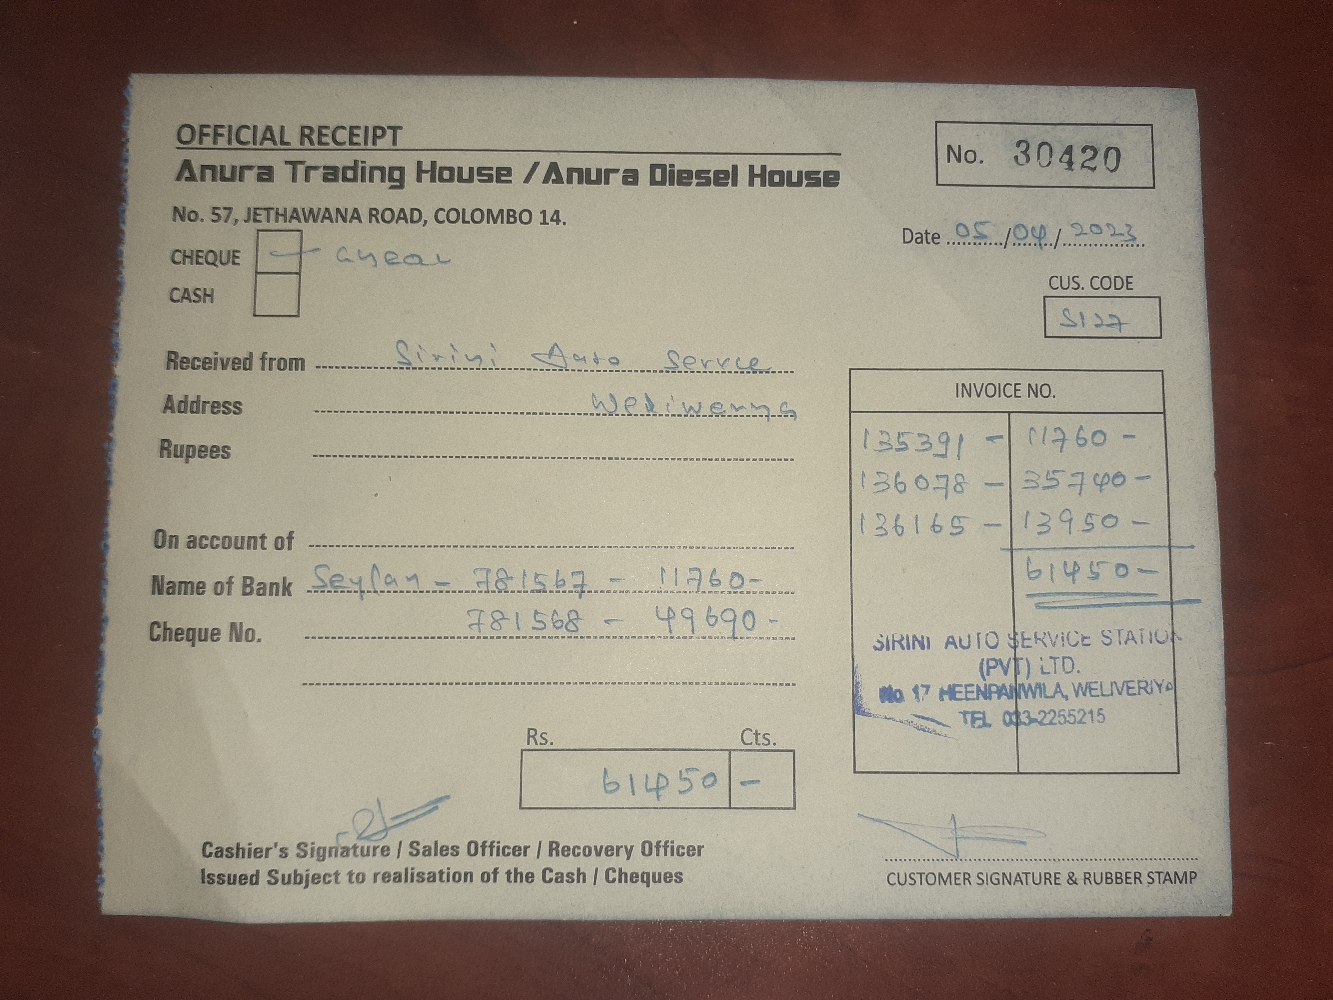 OFFICIAL RECEIPT
Anura Trading House / Anura Diesel House
No. 57, JETHAWANA ROAD, COLOMBO 14.
No. 30420
Date 05/04/2023
CHEQUE
CASH
CUS. CODE
S127
Received from Sirini Auto Servce
Address
Rupees
On account of
Name of Bank Seylan - 781567 - 11760-
Cheque No. 781568 - 49690-
INVOICE NO.
135391 - 11760 -
136078 - 35740 -
136165 - 13950 -
61450 -
SIRINI AUTO SERVICE STATION
(PVT) LTD.
No 17 HEENPANWILA, WELIVERIYA
TEL 033-2255215
Rs. Cts.
61450 -
Cashier's Signature / Sales Officer / Recovery Officer
Issued Subject to realisation of the Cash / Cheques
CUSTOMER SIGNATURE & RUBBER STAMP